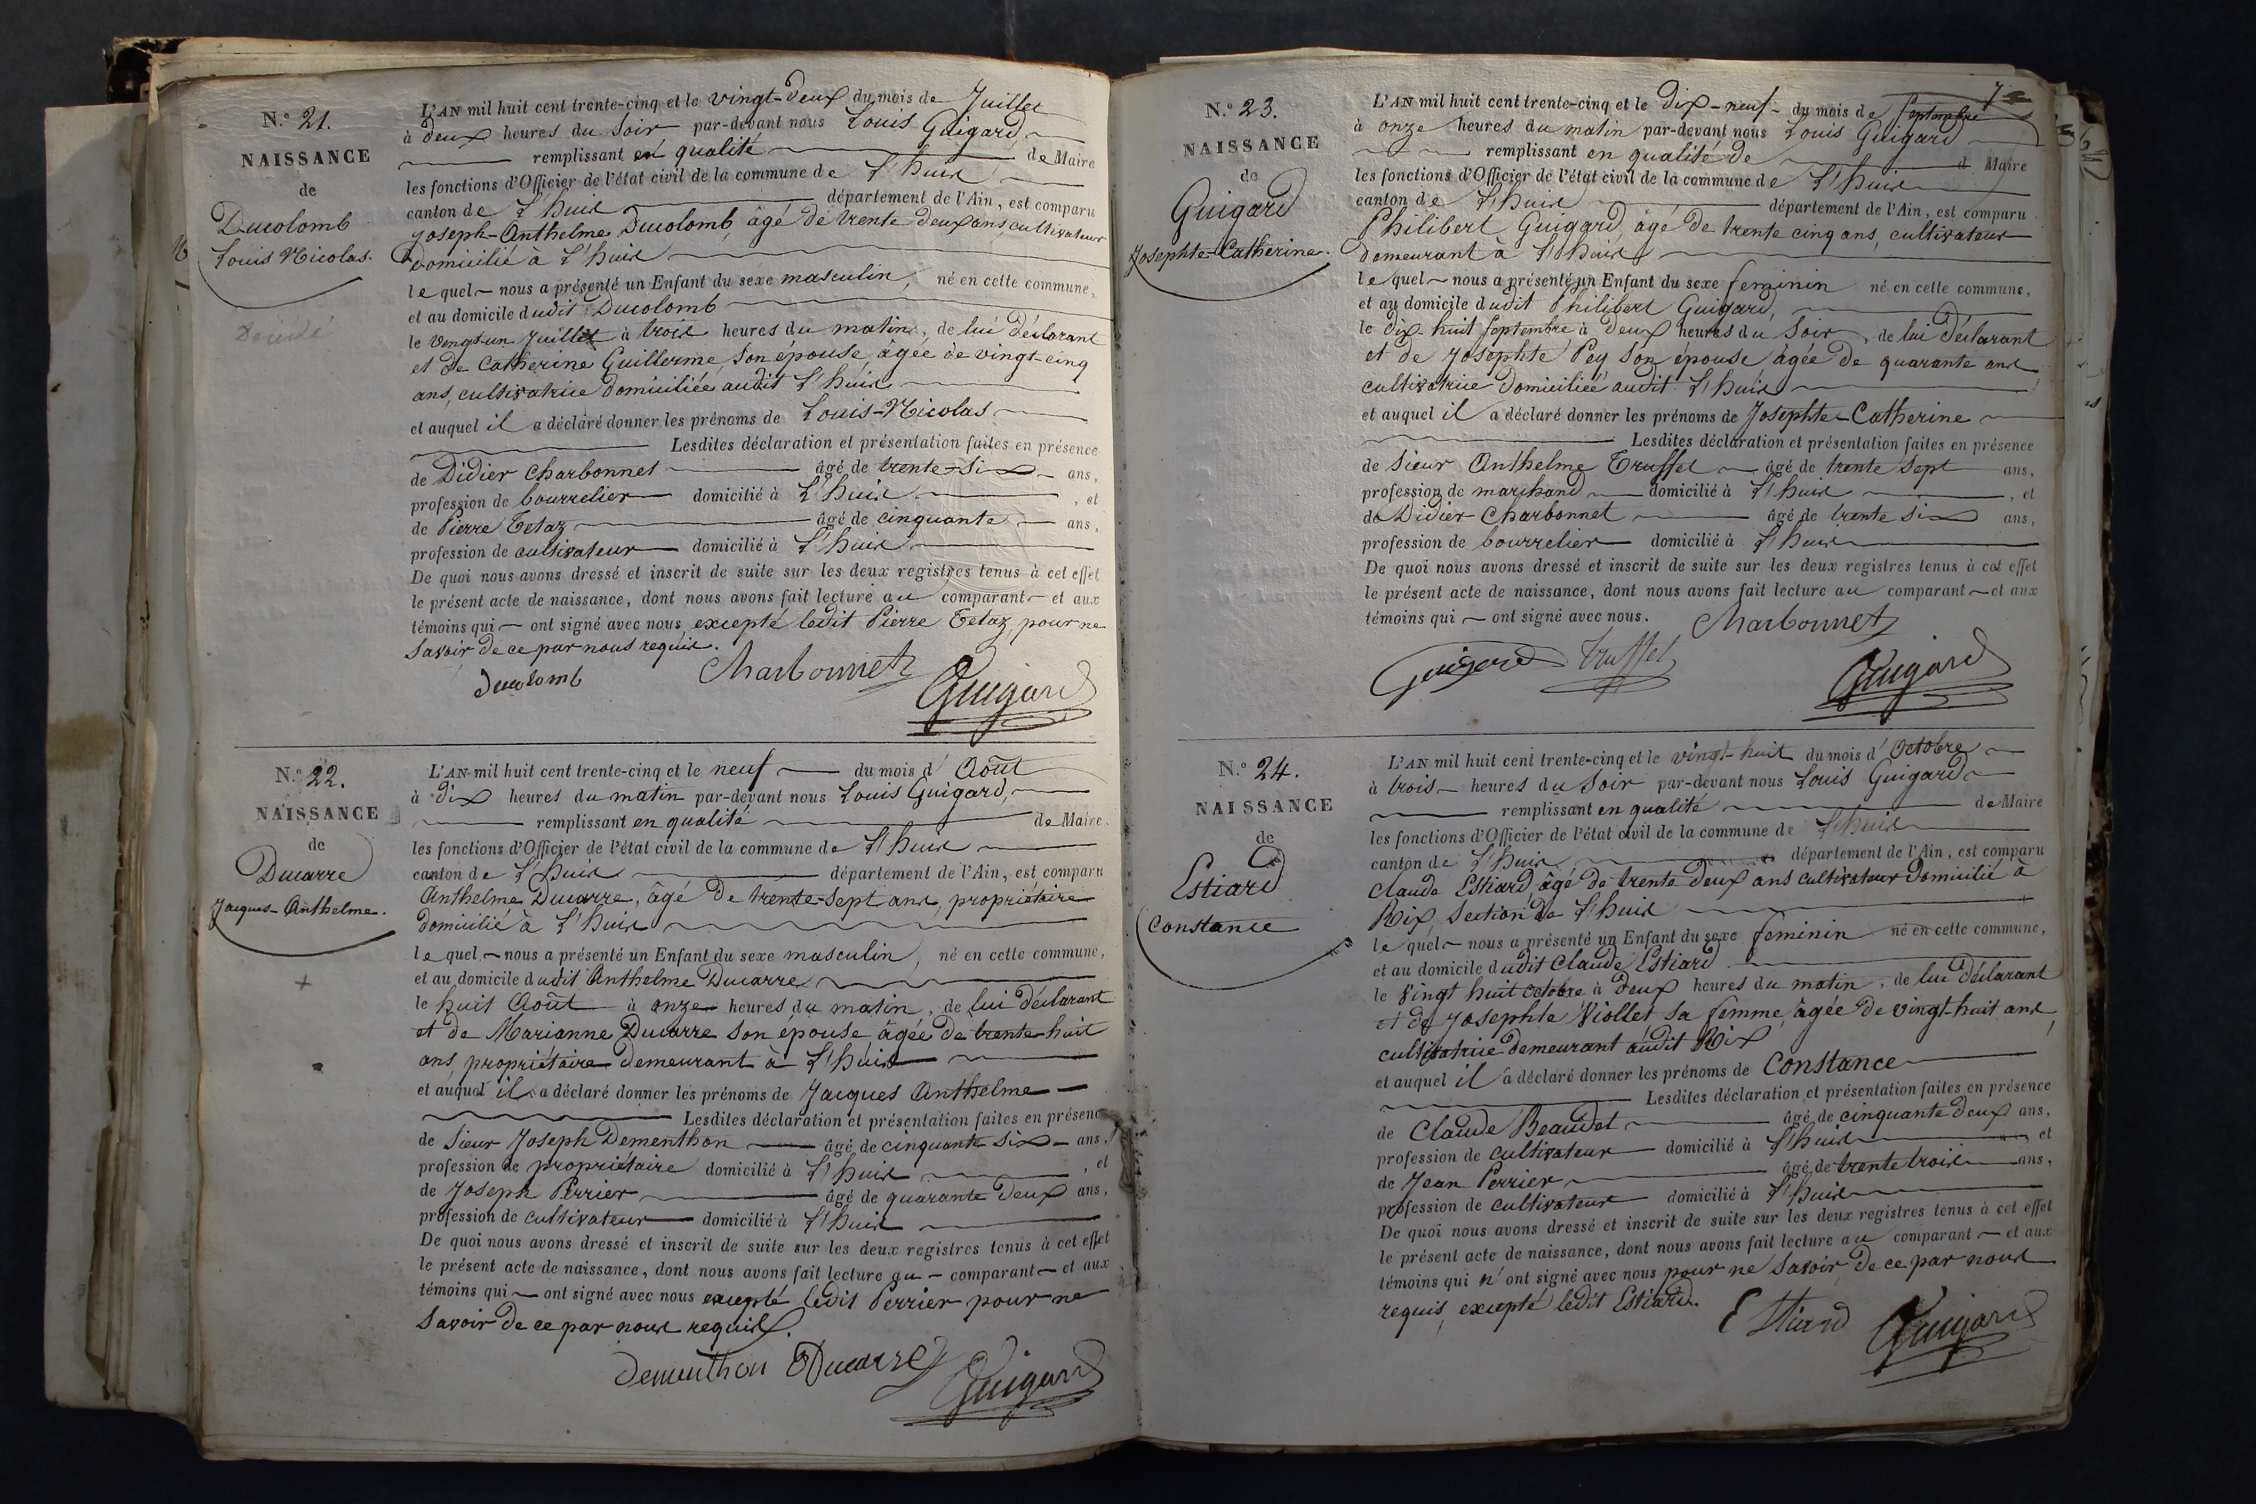 N.° 21.
NAISSANCE
de
Ducolomb
Louis Nicolas.
Décédé
L'AN mil huit cent trente-cinq et le vingt-deux du mois de Juillet
à deux heures du soir par-devant nous Louis Guigard,
remplissant en qualité de Maire
les fonctions d'Officier de l'état civil de la commune de L'huis
canton de L'huis département de l'Ain, est comparu
Joseph-Anthelme Ducolomb âgé de trente deux ans cultivateur
domicilié à L'huis
lequel nous a présenté un Enfant du sexe masculin, né en cette commune,
et au domicile dudit Ducolomb
le vingt un Juillet à trois heures du matin, de lui déclarant
et de Catherine Guillerme, son épouse, âgée de vingt cinq
ans, cultivatrice domiciliée audit L'huis
et auquel il a déclaré donner les prénoms de Louis-Nicolas
Lesdites déclaration et présentation faites en présence
de Didier Charbonnet âgé de trente-six ans,
profession de bourrelier domicilié à L'huis, et
de Pierre Tetaz âgé de cinquante ans,
profession de cultivateur domicilié à L'huis
De quoi nous avons dressé et inscrit de suite sur les deux registres tenus à cet effet
le présent acte de naissance, dont nous avons fait lecture au comparant et aux
témoins qui ont signé avec nous excepté ledit Pierre Tetaz, pour ne
savoir de ce par nous requis.
Ducolomb Charbonnet Guigard
N.° 22.
NAISSANCE
de
Ducarre
Jacques-Anthelme.
L'AN mil huit cent trente-cinq et le neuf du mois d'Août
à dix heures du matin par-devant nous Louis Guigard,
remplissant en qualité de Maire
les fonctions d'Officier de l'état civil de la commune de L'huis
canton de L'huis département de l'Ain, est comparu
Anthelme Ducarre, âgé de trente-sept ans, propriétaire
domicilié à L'huis
lequel nous a présenté un Enfant du sexe masculin, né en cette commune,
et au domicile dudit Anthelme Ducarre
le huit Août à onze heures du matin, de lui déclarant
et de Marianne Ducarre son épouse, âgée de trente-huit
ans, propriétaire demeurant à L'huis
et auquel il a déclaré donner les prénoms de Jacques Anthelme
Lesdites déclaration et présentation faites en présence
de Sieur Joseph Dementhon âgé de cinquante six ans,
profession de propriétaire domicilié à L'huis, et
de Joseph Perrier âgé de quarante deux ans,
profession de cultivateur domicilié à L'huis
De quoi nous avons dressé et inscrit de suite sur les deux registres tenus à cet effet
le présent acte de naissance, dont nous avons fait lecture au comparant et aux
témoins qui ont signé avec nous excepté ledit Perrier pour ne
savoir de ce par nous requis.
Dementhon Ducarre Guigard
N.° 23.
NAISSANCE
de
Guigard
Josephte-Catherine.
L'AN mil huit cent trente-cinq et le dix-neuf du mois de Septembre
à onze heures du matin par-devant nous Louis Guigard
remplissant en qualité de Maire
les fonctions d'Officier de l'état civil de la commune de L'huis
canton de L'huis département de l'Ain, est comparu
Philibert Guigard, âgé de trente cinq ans, cultivateur
demeurant à L'huis
lequel nous a présenté un Enfant du sexe feminin né en cette commune,
et au domicile dudit Philibert Guigard,
le dix huit Septembre à deux heures du soir, de lui déclarant
et de Josephte Pey son épouse âgée de quarante ans
cultivatrice domiciliée audit L'huis
et auquel il a déclaré donner les prénoms de Josephte-Catherine
Lesdites déclaration et présentation faites en présence
de Sieur Anthelme Truffet âgé de trente sept ans,
profession de marchand domicilié à L'huis, et
de Didier Charbonnet âgé de trente six ans,
profession de bourrelier domicilié à L'huis
De quoi nous avons dressé et inscrit de suite sur les deux registres tenus à cet effet
le présent acte de naissance, dont nous avons fait lecture au comparant et aux
témoins qui ont signé avec nous. Charbonnet
Guigard Truffet Guigard
N.° 24.
NAISSANCE
de
Estiard
Constance
L'AN mil huit cent trente-cinq et le vingt-huit du mois d'Octobre
à trois heures du soir par-devant nous Louis Guigard
remplissant en qualité de Maire
les fonctions d'Officier de l'état civil de la commune de L'huis
canton de L'huis département de l'Ain, est comparu
Claude Estiard, âgé de trente deux ans cultivateur domicilié à
Rix, section de L'huis
lequel nous a présenté un Enfant du sexe feminin né en cette commune,
et au domicile dudit Claude Estiard
le vingt huit octobre à deux heures du matin, de lui déclarant
et de Josephte Viollet sa femme, âgée de vingt-huit ans,
cultivatrice demeurant audit Rix
et auquel il a déclaré donner les prénoms de Constance
Lesdites déclaration et présentation faites en présence
de Claude Beaudet âgé de cinquante deux ans,
profession de cultivateur domicilié à L'huis et
de Jean Perrier âgé de trente trois ans,
profession de cultivateur domicilié à L'huis
De quoi nous avons dressé et inscrit de suite sur les deux registres tenus à cet effet
le présent acte de naissance, dont nous avons fait lecture au comparant et aux
témoins qui n'ont signé avec nous pour ne savoir de ce par nous
requis, excepté ledit Estiard.
Estiard Guigard